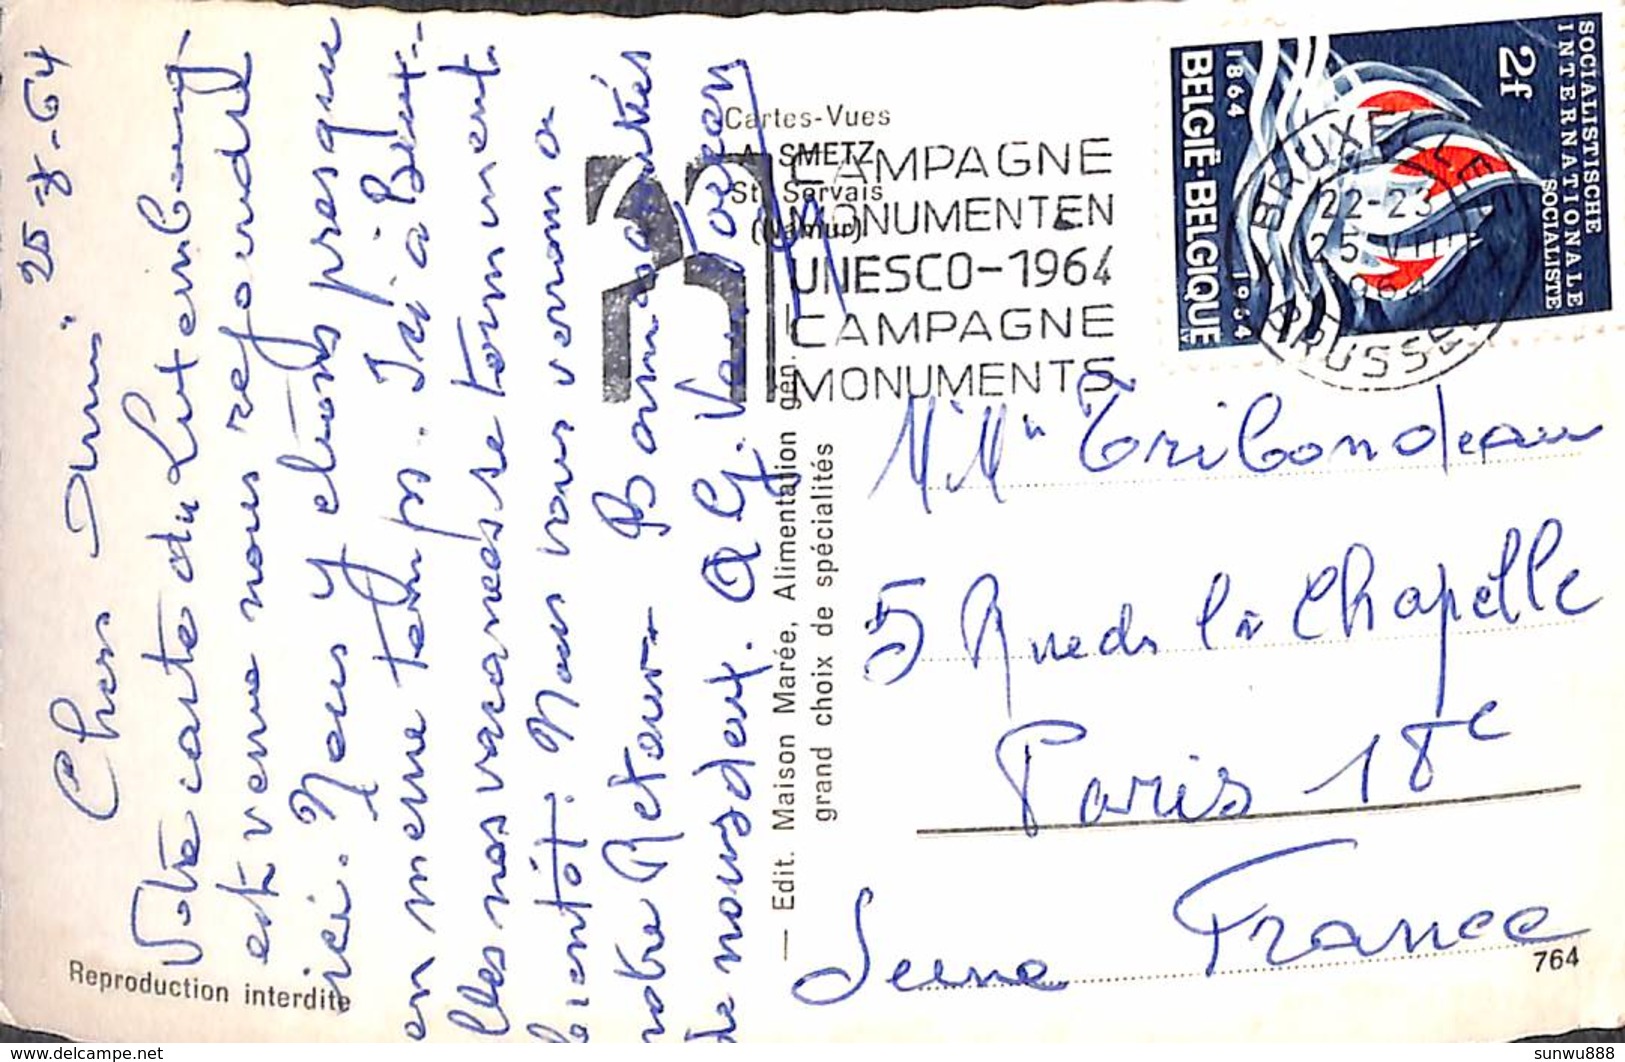 25-8-64
Chers Amis,
Votre carte du Luxembourg
est venue nous refoindre
ici. Nous y étions presque
en même temps. Ici à Blex-
les nos vacances se terminent
bientôt. Nous vous verrons a
notre Retour. Bonnes amitiés
de nous deux. A G. Van
Reproduction interdite
Cartes-Vues
A. SMETZ
St. Servais
(Namur)
— Edit. Maison Marée, Alimentation gén.
grand choix de spécialités
CAMPAGNE
MONUMENTEN
UNESCO-1964
CAMPAGNE
MONUMENTS
BRUXELLES
22-23
25-VIII
1964
BRUSSEL
SOCIALISTISCHE
INTERNATIONALE
SOCIALISTE
2f
1864 1964
BELGIË·BELGIQUE
M. Mme Tribondeau
5 Rue de la Chapelle
Paris 18e
Seine France
764
delcampe.net
sunwu888